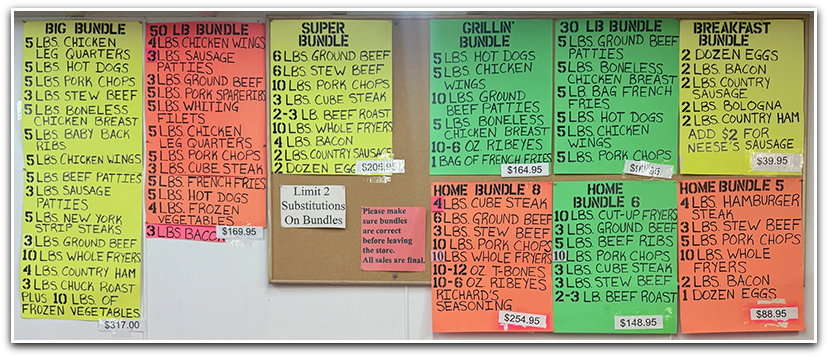 BIG BUNDLE
5 LBS CHICKEN
LEG QUARTERS
5 LBS HOT DOGS
5 LBS PORK CHOPS
3 LBS STEW BEEF
5 LBS BONELESS
CHICKEN BREAST
5 LBS BABY BACK
RIBS
5 LBS CHICKEN WINGS
5 LBS BEEF PATTIES
3 LBS SAUSAGE
PATTIES
5 LBS NEW YORK
STRIP STEAKS
3 LBS GROUND BEEF
10 LBS WHOLE FRYERS
4 LBS COUNTRY HAM
3 LBS CHUCK ROAST
PLUS 10 LBS OF
FROZEN VEGETABLES
$317.00
50 LB BUNDLE
4 LBS. CHICKEN WINGS
3 LBS SAUSAGE
PATTIES
3 LBS GROUND BEEF
5 LBS PORK SPARERIBS
5 LBS WHITING
FILETS
5 LBS CHICKEN
LEG QUARTERS
5 LBS PORK CHOPS
3 LBS CUBE STEAK
5 LBS FRENCH FRIES
5 LBS HOT DOGS
4 LBS FROZEN
VEGETABLE
3 LBS BACON
$169.95
SUPER
BUNDLE
6 LBS GROUND BEEF
6 LBS STEW BEEF
10 LBS PORK CHOPS
3 LBS CUBE STEAK
2-3 LB. BEEF ROAST
10 LBS WHOLE FRYERS
4 LBS BACON
2 LBS COUNTRY SAUSAGE
2 DOZEN EGGS
Limit 2
Substitutions
On Bundles
Please make
sure bundles
are correct
before leaving
the store.
All sales are final.
GRILLIN'
BUNDLE
5 LBS HOT DOGS
5 LBS CHICKEN
WINGS
10 LBS GROUND
BEEF PATTIES
5 LBS BONELESS
CHICKEN BREAST
10-6 OZ RIBEYES
1 BAG OF FRENCH FRIES
$164.95
30 LB BUNDLE
5 LBS GROUND BEEF
PATTIES
5 LBS BONELESS
CHICKEN BREAST
5 LB BAG FRENCH
FRIES
5 LBS HOT DOGS
5 LBS CHICKEN
WINGS
5 LBS PORK CHOPS
BREAKFAST
BUNDLE
2 DOZEN EGGS
2 LBS BACON
2 LBS COUNTRY
SAUSAGE
2 LBS. BOLOGNA
2 LBS COUNTRY HAM
ADD $2 FOR
NEESE'S SAUSAGE
$39.95
HOME BUNDLE 8
4 LBS CUBE STEAK
6 LBS GROUND BEEF
3 LBS STEW BEEF
10 LBS PORK CHOPS
10 LBS WHOLE FRYERS
10-12 OZ T-BONES
10-6 OZ RIBEYES
RICHARD'S
SEASONING
$254.95
HOME
BUNDLE 6
10 LBS CUT-UP FRYERS
3 LBS GROUND BEEF
5 LBS BEEF RIBS
10 LBS PORK CHOPS
3 LBS CUBE STEAK
3 LBS STEW BEEF
2-3 LB BEEF ROAST
$148.95
HOME BUNDLE 5
4 LBS HAMBURGER
STEAK
3 LBS STEW BEEF
5 LBS PORK CHOPS
10 LBS WHOLE
FRYERS
2 LBS BACON
1 DOZEN EGGS
$88.95